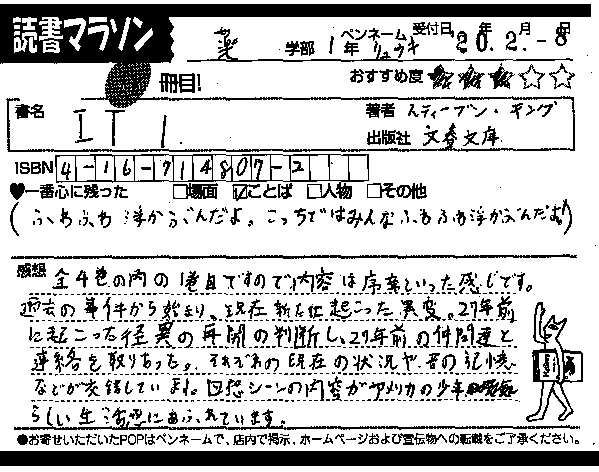 読書マラソン
薬 学部 1年 ペンネーム リュウキ 受付日 20年 2月-8日
冊目! おすすめ度 ★★★☆☆
書名 IT 1 著者 スティーブン・キング
出版社 文春文庫
ISBN 4-16-714807-2
♥一番心に残った □場面 ☑ことば □人物 □その他
(ふわふわ浮かぶんだよ。こっちではみんなふわふわ浮かぶんだよ)
感想 全4巻の内の1巻目ですので内容は序章といった感じです。
過去の事件から始まり、現在 起こった異変。27年前
に起こった怪異の再開の判断し、27年前の仲間達と
連絡を取りあった。それぞれの現在の状況や、昔の記憶
などが交錯しています。回想シーンの内容がアメリカの少年
らしい生活感にあふれています。
●お寄せいただいたPOPはペンネームで、店内で掲示、ホームページおよび宣伝物への転載をご了承ください。